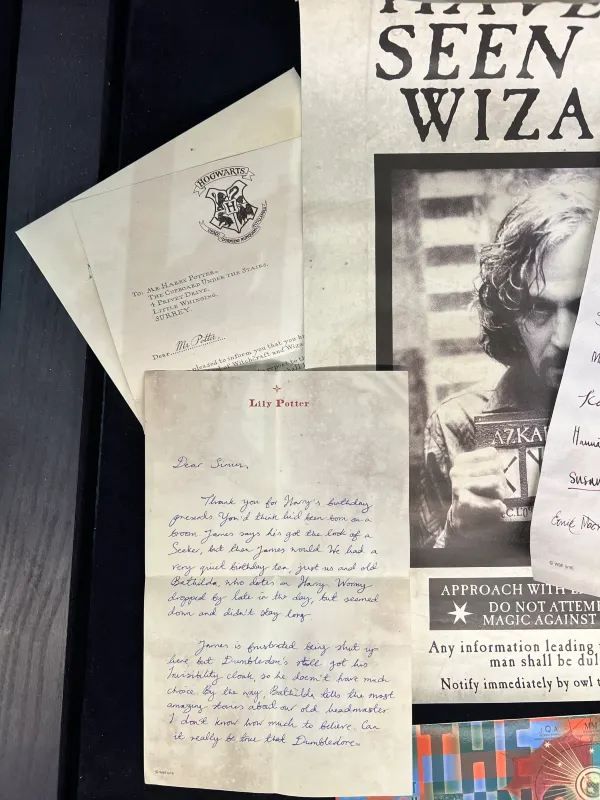 HAVE
SEEN
WIZA
HOGWARTS
To: MR HARRY POTTER,
THE CUPBOARD UNDER THE STAIRS,
4 PRIVET DRIVE,
LITTLE WHINGING,
SURREY.
Dear Mr. Potter
pleased to inform you that you
of Witchcraft and Wiza
AZKA
Lily Potter
Dear Sirius,
Thank you for Harry's birthday
presents. You'd think he'd been born on a
broom James says he's got the look of a
Seeker, but then James would. We had a
very quiet birthday tea, just us and old
Bathilda, who dotes on Harry Wormy
dropped by late in the day, but seemed
down and didn't stay long.
James is frustrated being shut up
here but Dumbledore's still got his
Invisibility cloak, so he doesn't have much
choice By the way, Bathilda tells the most
amazing stories about our old headmaster
I don't know how much to believe. Can
it really be true that Dumbledore
Hanna
Susan
Ernie
APPROACH WITH
DO NOT ATTEM
MAGIC AGAINST
Any information leading
man shall be dul
Notify immediately by owl t